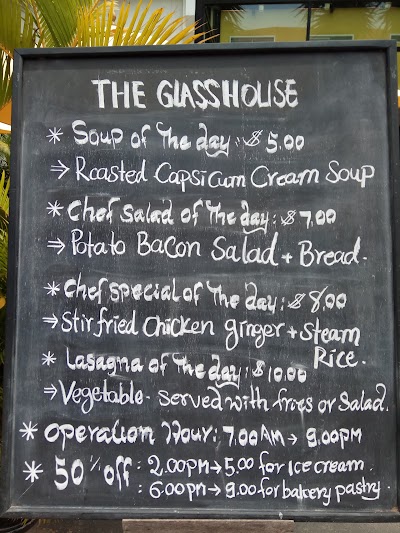 THE GLASSHOUSE
* Soup of The day: $ 5.00
⇒ Roasted Capsicum Cream Soup
* Chef Salad of The day: $ 7.00
⇒ Potato Bacon Salad + Bread.
* Chef special of The day: $ 8.00
⇒ Stir fried Chicken ginger + Steam
Rice.
* Lasagna of The day: $ 10.00
⇒ Vegetable - served with fries or Salad.
* Operation Hour: 7.00 AM → 9.00pm
* 50% off : 2.00pm → 5.00 for Ice cream.
: 6.00pm → 9.00 for bakery pastry.